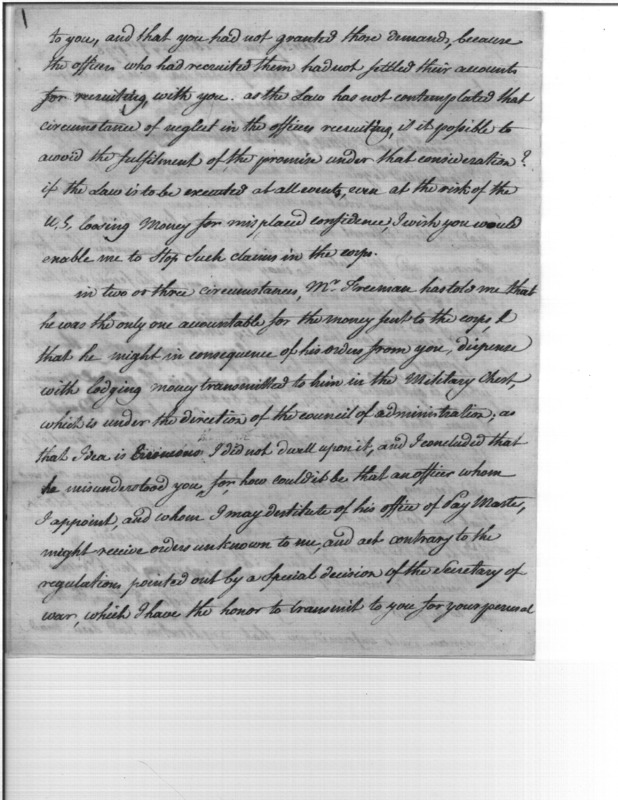 to you, and that you had not granted those demands, because
the officers who had recruited them had not settled their accounts
for recruiting, with you. as the Law has not contemplated that
circumstance of neglect in the officers recruiting, is it possible to
avoid the fulfilment of the promise under that consideration?
if the Law is to be executed at all events, even at the risk of the
U.S, loosing Money for misplaced confidence, I wish you would
enable me to stop Such claims in the corps.
in two or three circumstances, Mr. Freeman has told me that
he was the only one accountable for the money sent to the corps, &
that he might in consequence of his orders from you, dispense
with lodging money transmitted to him in the Military Chest,
which is under the direction of the council of administration; as
that Idea is I did not dwell upon it, and I concluded that
he misunderstood you, for, how could it be that an officer whom
I appoint, and whom I may destitute of his office of Pay Master,
might receive orders unknown to me, and act contrary to the
regulations pointed out by a Special decision of the Secretary of
war, which I have the honor to transmit to you for your perusal